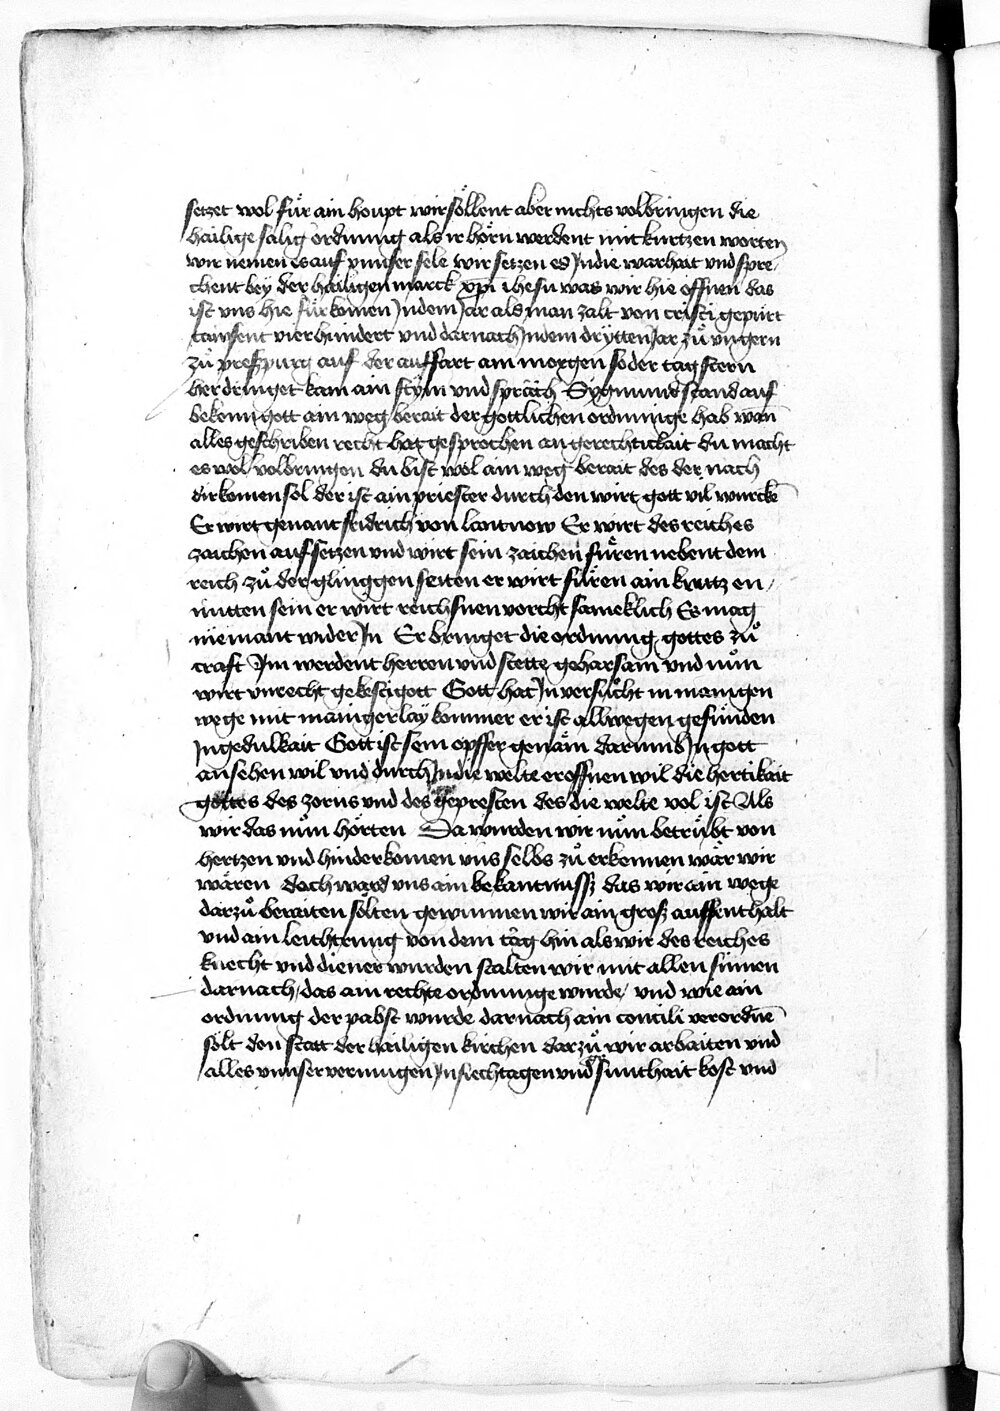 setzet wol für ain houpt wir söllent aber nichts volbringen die
hailige sälig ordnung als ir hörn werdent mit kurtzen worten
wir nemen es auf vnnser sele wir setzen es Jn die warhait vnd spre-
chent bey der hailigen marck xp̄i ihesu was wir hie offnen das
ist vns hie für komen Jn dem Jar als man zalt von cristi gepurt
tawsent vierhundert vnd darnach Jn dem drytten Jar zů vngern
zů preszpurg auf der auffart am morgen so der tag stern
her dringet kam ain stym vnd sprach Sygmund stand auf
bekenn gott ain weg berait der gottlichen ordnunge hab wan̄
alles geschriben recht hat gesprochen an gerechtickait du macht
es wol volbringen du bist wol ain weg berait des der nach
dir komen sol der ist ain priester durch den wirt gott vil wurckē
Er wirt genant fridrich von lantnow Er wirt des reiches
zaichen auf setzen vnd wirt sein zaichen füren nebent dem
reich zů der glinggen seiten er wirt füren ain krutz en
mitten sein er wirt reichsnen vorcht sameklich Es mag
niemant wider Jn Er bringet die ordnung gottes zů
craft Jm werdent herren vnd stette gehorsam vnd nům
wirt vnrecht gekestigott Gott hat Jn versůcht in manigen
wege mit manigerlay kommer er ist allwegen gefunden
Jn gedulkait Gott ist sein opffer genäm darumb Jn gott
ansehen wil vnd durch Jn die welte eroffnen wil die hertikait
gottes des zorns vnd des gepresten des die welte vol ist Als
wir das nům hörten Da wurden wir nům betrübt von
hertzen vnd hinderkomen vns selbs zů erkennen wär wir
wären doch ward vns ain bekantnusz das wir ain wege
darzů beraiten sölten gewinnen wir ain grosz auffenthalt
vnd ain leichtrung von dem tag hin als wir des reiches
knecht vnd diener wurden stalten wir mit allen sinnen
darnach das ain rechte ordnunge wurde vnd wie ain
ordnung der pabst wurde darnach ain concili verordnē
sölt den statt der hailigen kirchen darzů wir arbaiten vnd
alles vnnser vermugen Jn siechtagen vnd gsunthait kost vnd